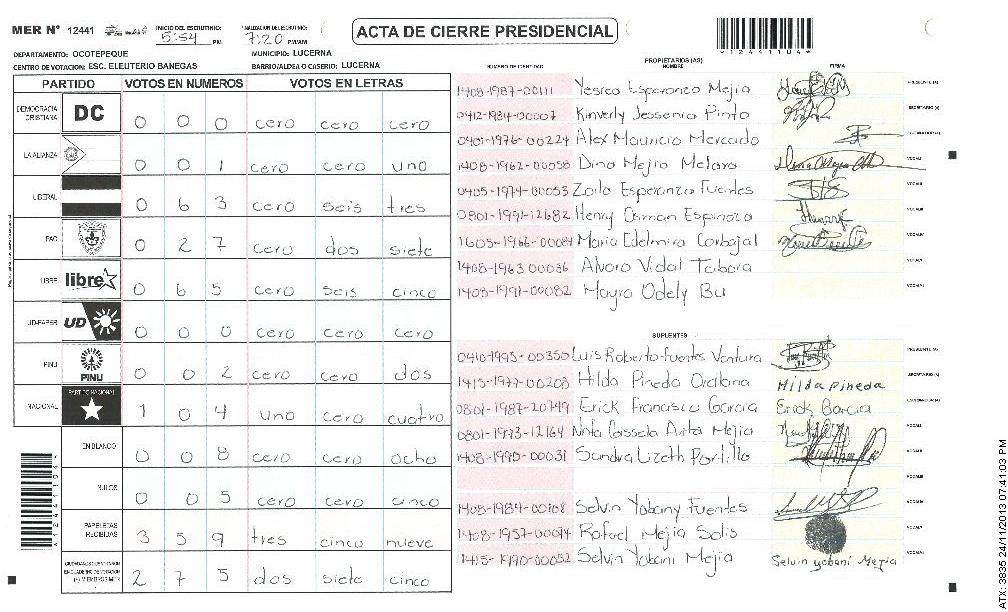 MER Nº 12441
INICIO DEL ESCRUTINIO: 5:54 PM
FINALIZACION DEL ESCRUTINIO: 7:20 PM/AM
ACTA DE CIERRE PRESIDENCIAL
*12441104*
DEPARTAMENTO: OCOTEPEQUE
MUNICIPIO: LUCERNA
CENTRO DE VOTACION: ESC. ELEUTERIO BANEGAS
BARRIO/ALDEA O CASERIO: LUCERNA
PARTIDO VOTOS EN NUMEROS VOTOS EN LETRAS
DEMOCRACIA CRISTIANA DC 0 0 0 cero cero cero
LA ALIANZA 0 0 1 cero cero uno
LIBERAL 0 6 3 cero seis tres
PAC 0 2 7 cero dos siete
LIBRE libre 0 6 5 cero seis cinco
UD-FAPER UD 0 0 0 cero cero cero
PINU PINU 0 0 2 cero cero dos
NACIONAL PARTIDO NACIONAL 1 0 4 uno cero cuatro
EN BLANCO 0 0 8 cero cero ocho
NULOS 0 0 5 cero cero cinco
PAPELETAS RECIBIDAS 3 5 9 tres cinco nueve
CIUDADANOS QUE VOTARON EN CUADERNO DE VOTACION (+) MIEMBROS MER 2 7 5 dos siete cinco
NUMERO DE IDENTIDAD
PROPIETARIOS (AS)
NOMBRE
FIRMA
1408-1987-00111 Yesica Esperanza Mejia PRESIDENTE (A)
0412-1984-00007 Kinverly Jessenia Pinto SECRETARIO (A)
0401-1976-00224 Alex Mauricio Mercado
1408-1962-00058 Dina Mejia Melara VOCAL I
0405-1974-00053 Zoila Esperanza Fuentes VOCAL II
0801-1991-12682 Henry Osman Espinoza VOCAL III
1605-1966-00084 Maria Edelmira Carbajal VOCAL IV
1408-1963-00036 Alvaro Vidal Tabora VOCAL V
1408-1991-00082 Mayra Odely Bu VOCAL VI
SUPLENTES
0410-1995-00350 Luis Roberto Fuentes Ventura PRESIDENTE (A)
1415-1977-00208 Hilda Pineda Orellana Hilda Pineda SECRETARIO (A)
0801-1987-20749 Erick Francisco Garcia Erick Garcia
0801-1993-12164 VOCAL I
1408-1990-00031 Sandra Lizeth Portillo VOCAL II
VOCAL III
1408-1984-00108 Selvin Yobany Fuentes VOCAL IV
1408-1957-00094 Rafael Mejia Solis VOCAL V
1415-1990-00052 Selvin Yobani Mejia Selvin yobani Mejia VOCAL VI
ATX: 3835 24/11/2013 07:41:03 PM